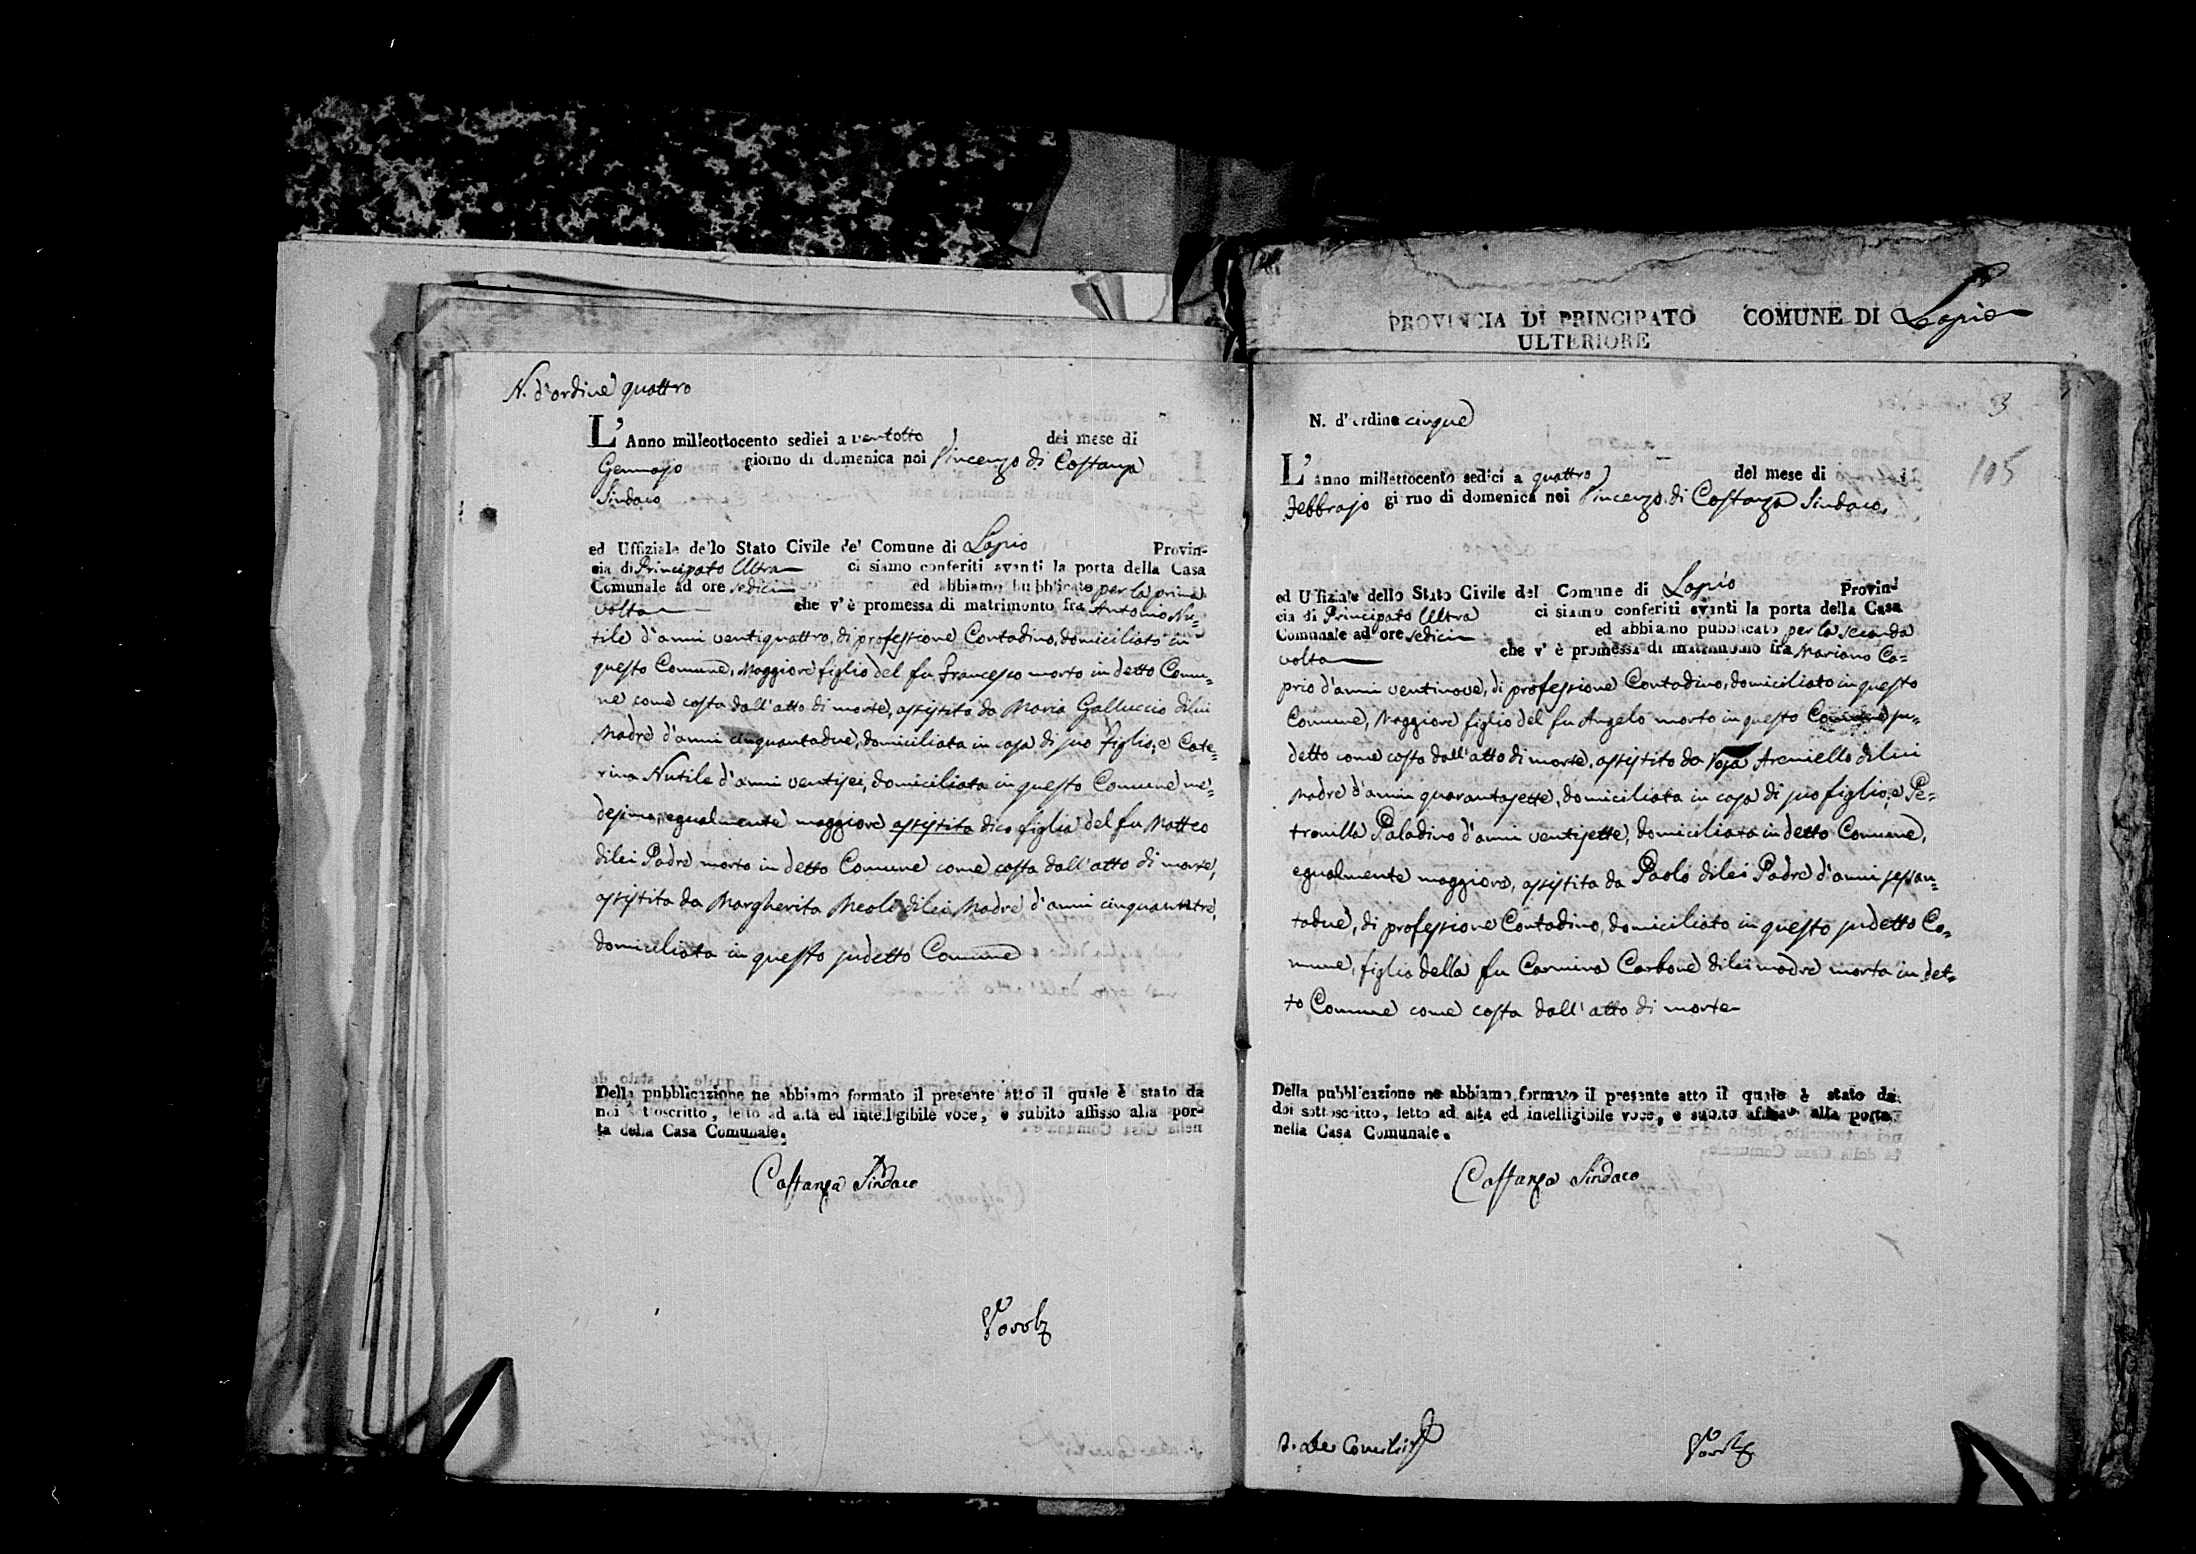 N. d'ordine quattro
L'Anno milleottocento sedici a ventotto del mese di
Gennajo giorno di domenica noi Vincenzo di Costanza
Sindaco
ed Uffiziale dello Stato Civile de' Comune di Lapio Provin-
cia di Principato Ultra ci siamo conferiti avanti la porta della Casa
Comunale ad ore sedici ed abbiamo pubblicato per la prima
volta che v'è promessa di matrimonio fra Antonio Nu-
tile d'anni ventiquattro, di professione Contadino, domiciliato in
questo Comune, Maggiore figlio del fu Francesco morto in detto Comu-
ne come costa dall'atto di morte, assistito da Maria Galluccio di lui
Madre d'anni cinquantadue, domiciliata in casa di suo figlio, e Cate-
rina Nutile d'anni ventisei, domiciliata in questo Comune me-
desimo, egualmente maggiore assistita dico figlia del fu Matteo
di lei Padre morto in detto Comune come costa dall'atto di morte,
assistita da Margherita Meola di lei Madre d'anni cinquantatre,
domiciliata in questo sudetto Comune
Della pubblicazione ne abbiamo formato il presente atto il quale è stato da
noi sottoscritto, letto ad alta ed intelligibile voce, e subito affisso alla por-
ta della Casa Comunale.
Costanza Sindaco
PROVINCIA DI PRINCIPATO COMUNE DI Lapio
ULTERIORE
3
N. d'ordine cinque
105
L'Anno milleottocento sedici a quattro del mese di
Febbrajo giorno di domenica noi Vincenzo di Costanza Sindaco,
ed Uffiziale dello Stato Civile del Comune di Lapio Provin-
cia di Principato Ultra ci siamo conferiti avanti la porta della Casa
Comunale ad ore sedici ed abbiamo pubblicato per la seconda
volta che v'è promessa di matrimonio fra Mariano Ca-
prio d'anni ventinove, di professione Contadino, domiciliato in questo
Comune, Maggiore figlio del fu Angelo morto in questo Comune su-
detto come costa dall'atto di morte, assistito da Rosa Arciniello di lui
Madre d'anni quarantasette, domiciliata in casa di suo figlio, e Pe-
tronilla Paladino d'anni ventisette, domiciliata in detto Comune,
egualmente maggiore, assistita da Paolo di lei Padre d'anni sessan-
tadue, di professione Contadino, domiciliato in questo sudetto Co-
mune, figlia della fu Carmina Carbone di lei madre morta in det-
to Comune come costa dall'atto di morte
Della pubblicazione ne abbiamo formato il presente atto il quale è stato da
doi sottoscritto, letto ad alta ed intelligibile voce, e subito affisso alla porta
nella Casa Comunale.
Costanza Sindaco